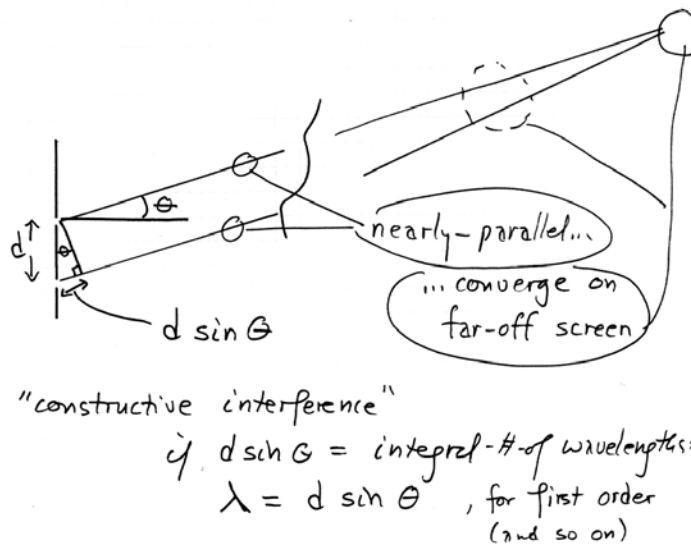 θ
d
θ
nearly-parallel...
...converge on
far-off screen
d sin θ
"constructive interference"
if d sin θ = integral-#-of wavelengths:
λ = d sin θ , for first order
(and so on)